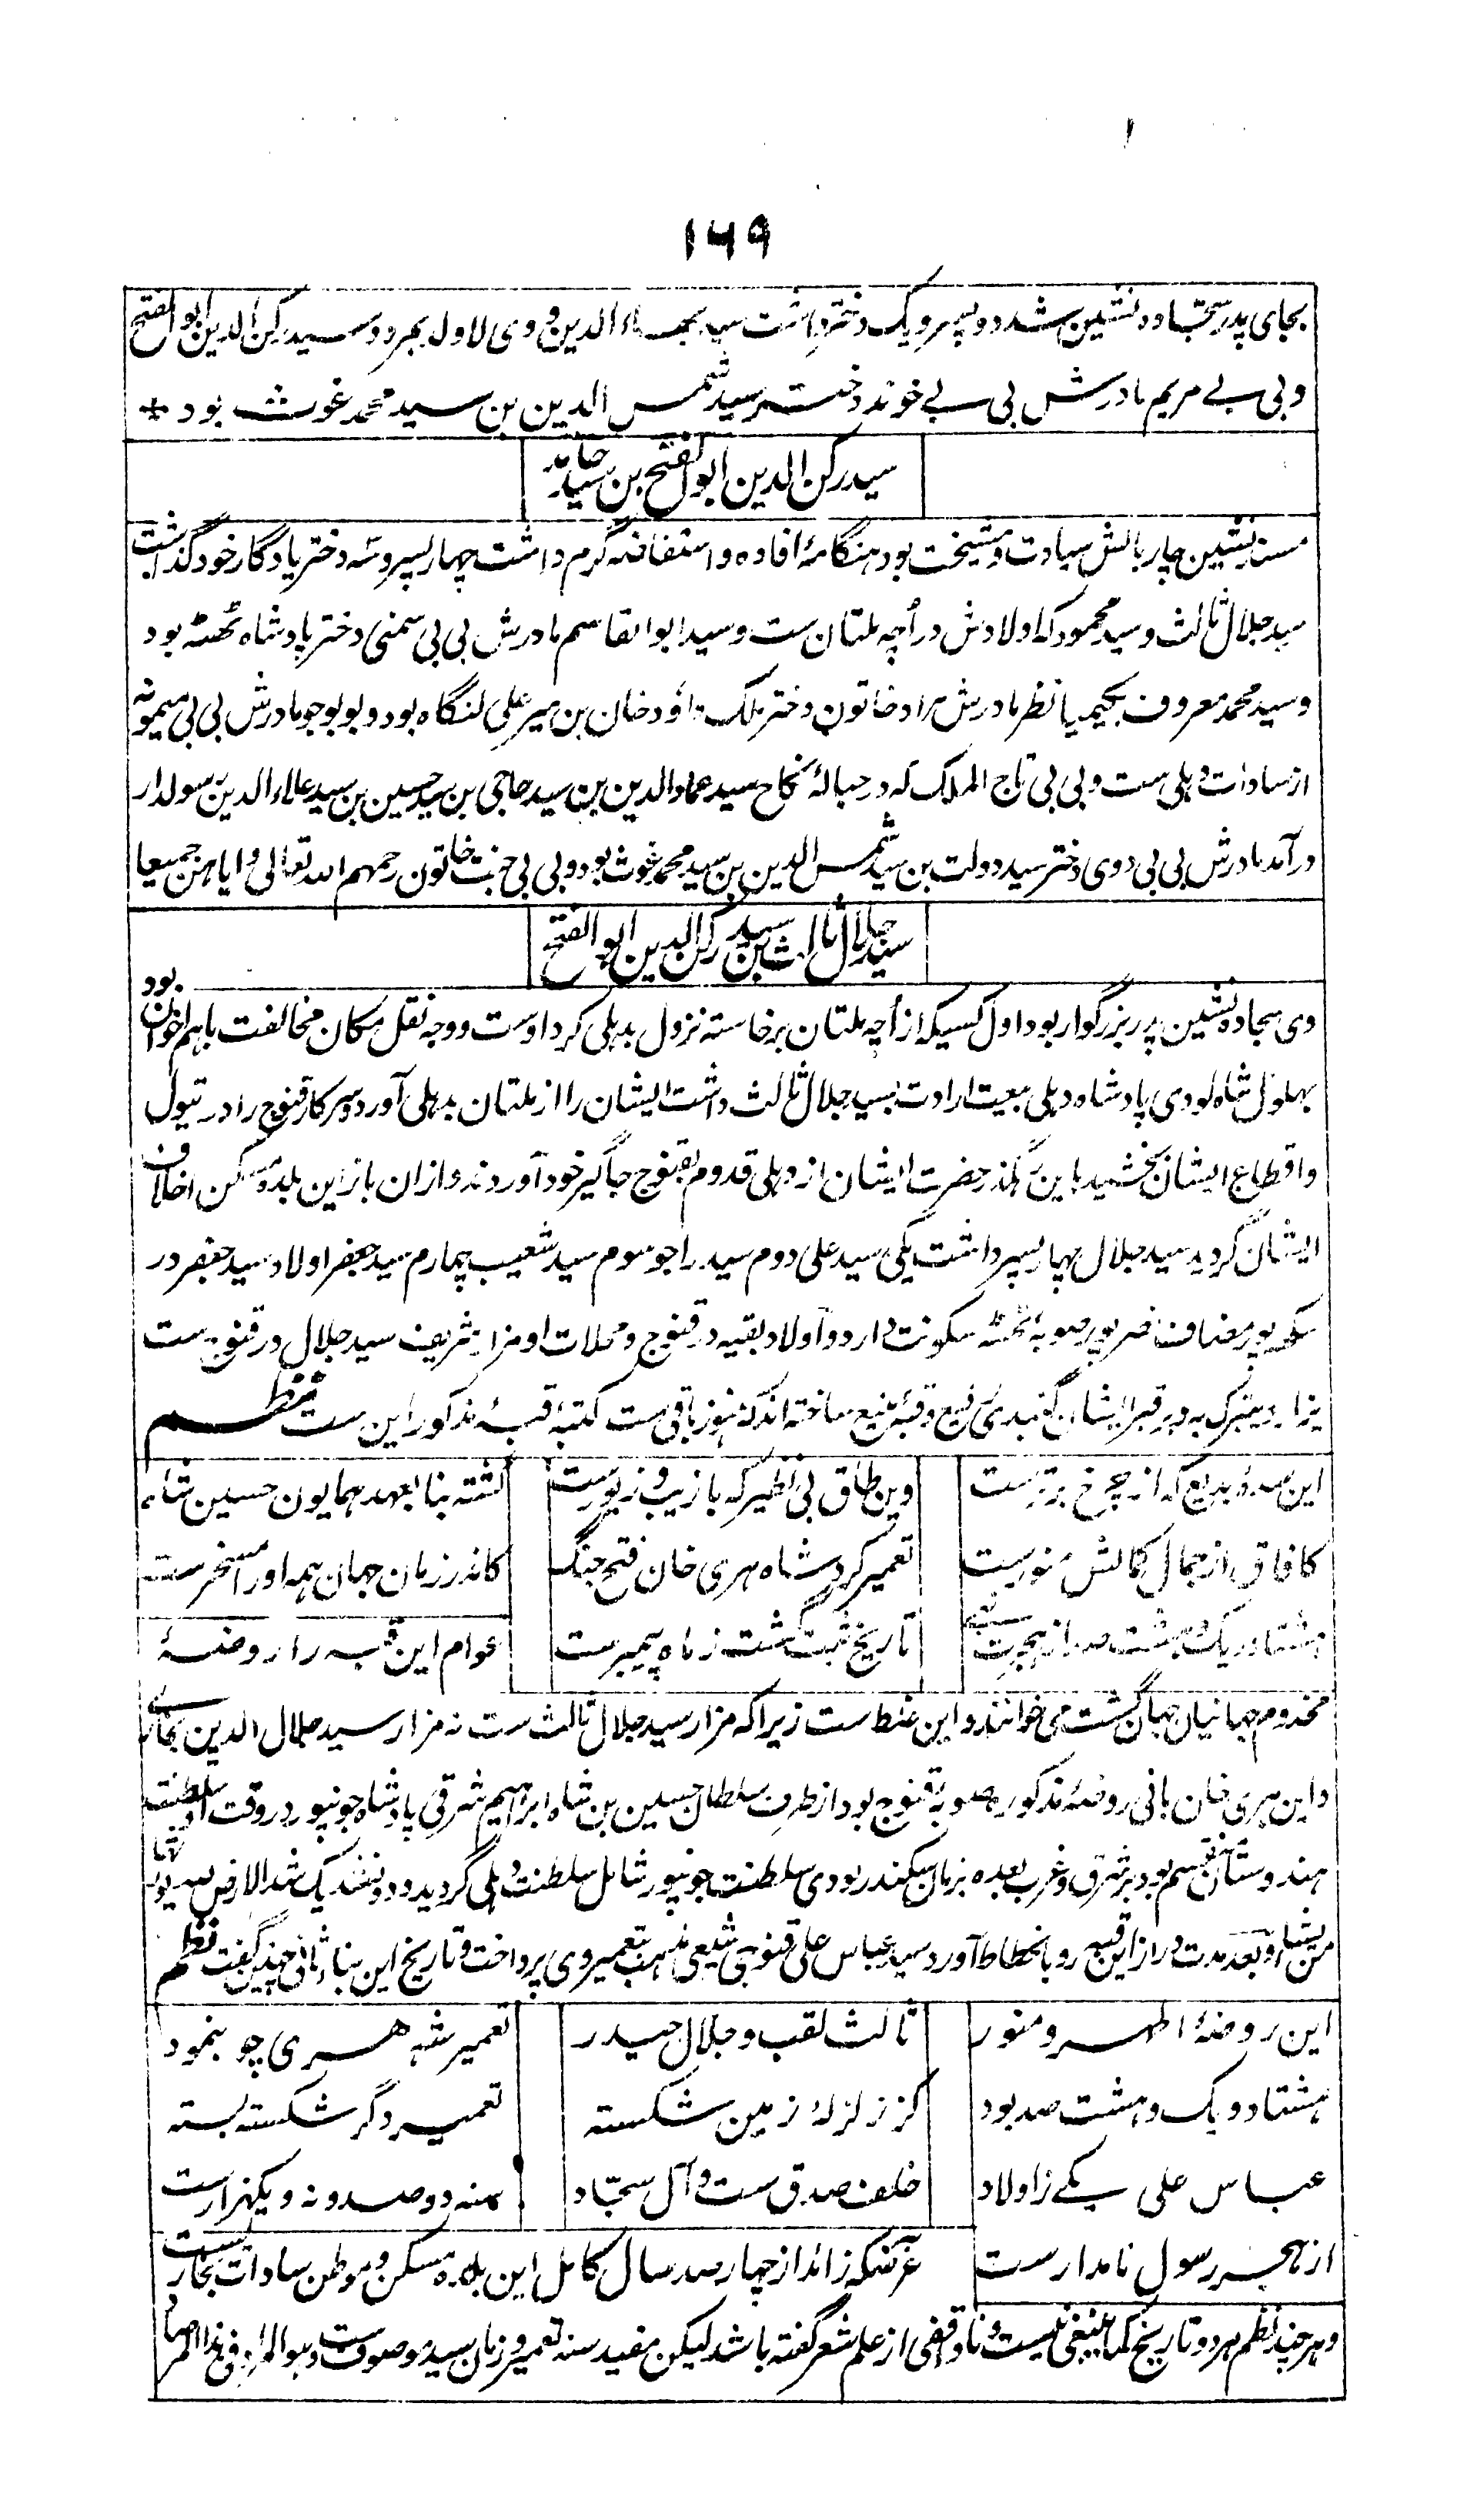 ۱۶۹
بجای پدر سجاده نشین شد دو پسر و یک دختر داشت سید بهاء الدین و وی لاولد بمرد و سید رکن الدین ابو الفتح
و بی بی مریم مادرش بی بی خوند دختر سید شمس الدین بن سید محمد غوث بود *
سید رکن الدین ابو الفتح بن سید حامد
مسند نشین چار بالش سیادت و مشیخت بود هنگامۀ افاده و استفاضه گرم داشت چهار پسر و سه دختر یادگار خود گذاشت
سید جلال ثالث و سید محمود که اولادش در اُچه ملتان ست و سید ابو القاسم مادرش بی بی سمنی دختر پادشاه ٹھٹہ بود
و سید محمد معروف بکیمیا نظر مادرش مراد خاتون دختر ملک داؤد خان بن میر علی لنگاه بود و بوبوجو مادرش بی بی میمونه
از سادات دهلی ست و بی بی تاج الملک که در حبالۀ نکاح سید عماد الدین بن سید حاجی بن سید حسین بن سید علاء الدین سولدار
درآمد مادرش بی بی دوی دختر سید دولت بن سید شمس الدین بن سید محمد غوث بود و بی بی بخت خاتون رحمهم الله تعالی و ایاهن جمیعا
سید جلال ثالث بن سید رکن الدین ابو الفتح
وی سجاده نشین پدر بزرگوار بود اول کسیکه از اُچه ملتان برخاسته نزول بدهلی کرد اوست و وجه نقل مکان مخالفت باهم اخوان بود
بهلول شاه لودی پادشاه دهلی بیعت ارادت بسید جلال ثالث داشت ایشان را از ملتان بدهلی آورد و سرکار قنوج را در تیول
و اقطاع ایشان بخشید باین رهگذر حضرت ایشان از دهلی قدوم بقنوج جاگیر خود آوردند و ازان باز این بلده مسکن اخلاف
ایشان گردید سید جلال چهار پسر داشت یکی سید علی دوم سید راجو سوم سید شعیب چهارم سید جعفر اولاد سید جعفر در
پور مضاف نصرپور صوبه ٹھٹہ سکونت دارد و اولاد بقیه در قنوج و محلات او مزار شریف سید جلال در قنوج ست
یزار و یتبرک به و بر قبر ایشان گنبدی رفیع و قبۀ منیع ساخته اند که هنوز باقی ست کتبۀ قبۀ مذکور این ست نظم
این سدۀ بدیع که از چرخ برترست وین طاق بی نظیر که با زیب و زیورست گشته بنا بعهد همایون حسین شاه
کافاق از جمال کمالش منورست تعمیر کرد شاه هری خان فتح جنگ کاندر زمان جهان همه او را مسخرست
هشتاد و یک بهشت صد از هجرت نبی تاریخ ثبت گشت ز ماه پیمبرست عوام این قبه را روضۀ
مخدوم جهانیان جهان گشت می خوانند و این غلط ست زیرا که مزار سید جلال ثالث ست نه مزار سید جلال الدین بخاری
و این هری خان بانی روضۀ مذکور صوبۀ قنوج بود از طرف سلطان حسین بن شاه ابراهیم شرقی پادشاه جونپور در وقت او سلطنت
هندوستان منقسم بود بر شرق و غرب بعده بزمان سکندر لودی سلطنت جونپور شامل سلطنت دهلی گردید و دو تفنگ یک شد الارض لله یورثها
من یشاء و بعد مدت دراز این قبه رو بانحطاط آورد سید عباس علی قنوجی شیعی مذهب بتعمیر وی پرداخت و تاریخ این بناء ثانی چنین گفت نظم
این روضۀ اطهر و منور ثالث لقب و جلال حیدر تعمیر شه هری چو بنمود
هشتاد و یک و هشت صد بود کز زلزلۀ زمین شکسته تعمیر دگر شکسته بسته
عباس علی یکے ز اولاد خلف صدق ست و آل سجّاد سنه دو صد و نه و یکهزارست
از هجر رسول نامدارست غرضکه زائد از چهار صد سال کامل این بلده مسکن و موطن سادات بخاریست
و هر چند نظم هر دو تاریخ کما ینبغی نیست و ناواقفی از علم شعر گفته باشد لیکن مفید سنه تعمیر و زمان سید موصوف ست و هو المراد فی هذا المقام